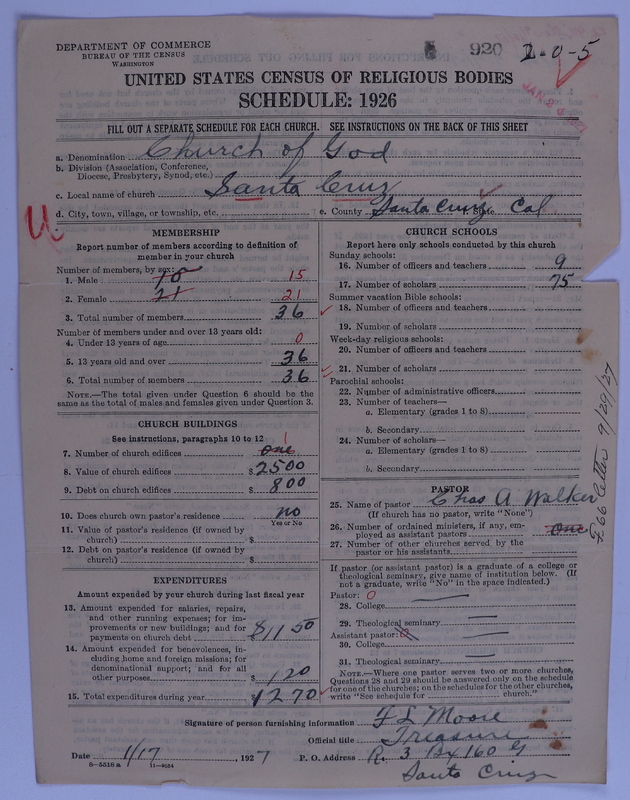 DEPARTMENT OF COMMERCE
BUREAU OF THE CENSUS
WASHINGTON
920
2-0-5
UNITED STATES CENSUS OF RELIGIOUS BODIES
SCHEDULE: 1926
FILL OUT A SEPARATE SCHEDULE FOR EACH CHURCH. SEE INSTRUCTIONS ON THE BACK OF THIS SHEET
a. Denomination Church of God
b. Division (Association, Conference,
Diocese, Presbytery, Synod, etc.)
c. Local name of church Santa Cruz
d. City, town, village, or township, etc. e. County Santa Cruz State Cal
MEMBERSHIP
Report number of members according to definition of
member in your church
Number of members, by sex:
1. Male 15 15
2. Female 21 21
3. Total number of members 36
Number of members under and over 13 years old:
4. Under 13 years of age 0
5. 13 years old and over 36
6. Total number of members 36
NOTE.—The total given under Question 6 should be
same as the total of males and females given under Question 3.
CHURCH BUILDINGS
See instructions, paragraphs 10 to 12
7. Number of church edifices one 1
8. Value of church edifices $ 2500
9. Debt on church edifices $ 800
10. Does church own pastor's residence no
Yes or No
11. Value of pastor's residence (if owned by
church) $
12. Debt on pastor's residence (if owned by
church) $
EXPENDITURES
Amount expended by your church during last fiscal year
13. Amount expended for salaries, repairs,
and other running expenses; for im-
provements or new buildings; and for
payments on church debt $1150
14. Amount expended for benevolences, in-
cluding home and foreign missions; for
denominational support; and for all
other purposes $ 120
15. Total expenditures during year 1270
CHURCH SCHOOLS
Report here only schools conducted by this church
Sunday schools:
16. Number of officers and teachers 9
17. Number of scholars 75
Summer vacation Bible schools:
18. Number of officers and teachers
19. Number of scholars
Week-day religious schools:
20. Number of officers and teachers
21. Number of scholars
Parochial schools:
22. Number of administrative officers
23. Number of teachers—
a. Elementary (grades 1 to 8)
b. Secondary
24. Number of scholars—
a. Elementary (grades 1 to 8)
b. Secondary
PASTOR
25. Name of pastor Chas A. Walker
(If church has no pastor, write "None")
26. Number of ordained ministers, if any, em-
ployed as assistant pastors one
27. Number of other churches served by the
pastor or his assistants
If pastor (or assistant pastor) is a graduate of a college or
theological seminary, give name of institution below. (If
not a graduate, write "No" in the space indicated.)
Pastor: 0
28. College
29. Theological seminary
Assistant pastor:
30. College
31. Theological seminary
NOTE.—Where one pastor serves two or more churches,
Questions 28 and 29 should be answered only on the schedule
for one of the churches; on the schedules for the other churches,
write "See schedule for church."
Letter 9/29/27
Signature of person furnishing information F L Moore
Official title Treasure
Date 1/17, 1927 P. O. Address R. 3 Bx 160 G
8-5518 a 11-9054
Santa Cruz